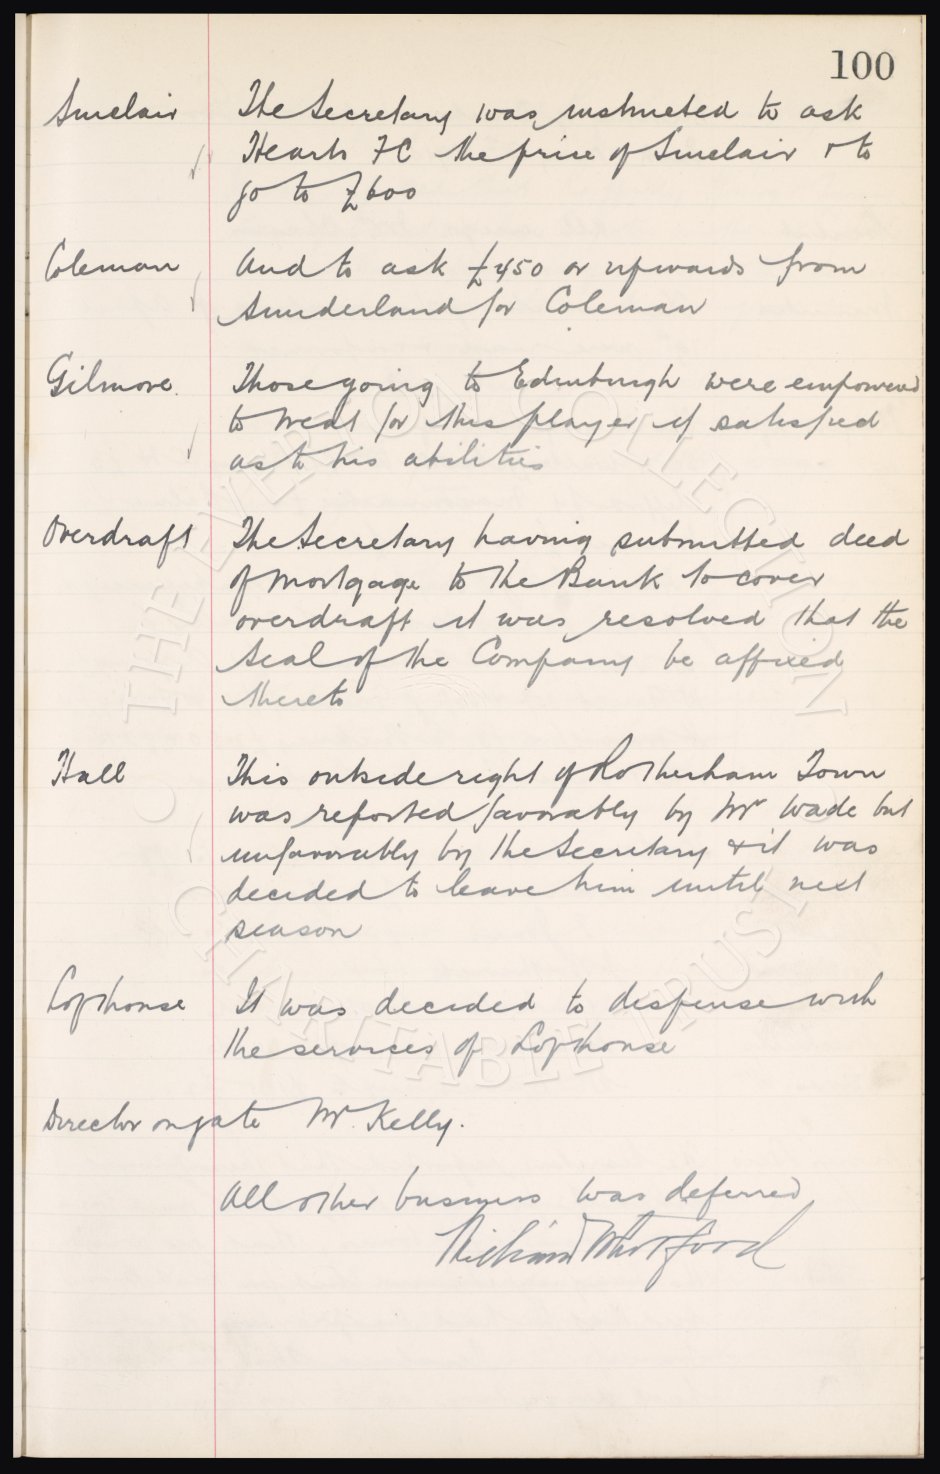 100
Sinclair The Secretary was instructed to ask
Hearts FC the price of Sinclair & to
go to £600
Coleman And to ask £450 or upwards from
Sunderland for Coleman
Gilmore. Those going to Edinburgh were empowered
to treat for this player if satisfied
as to his abilities
Overdraft The Secretary having submitted deed
of mortgage to the Bank to cover
overdraft it was resolved that the
Seal of the Company be affixed
thereto
Hall This outside right of Rotherham Town
was reported favorably by Mr Wade but
unfavorably by the Secretary & it was
decided to leave him until next
season
Lofthouse It was decided to dispense with
the services of Lofthouse
Director on gate Mr. Kelly.
All other business was deferred
Richard Whitford
THE EVERTON COLLECTION
CHARITABLE TRUST